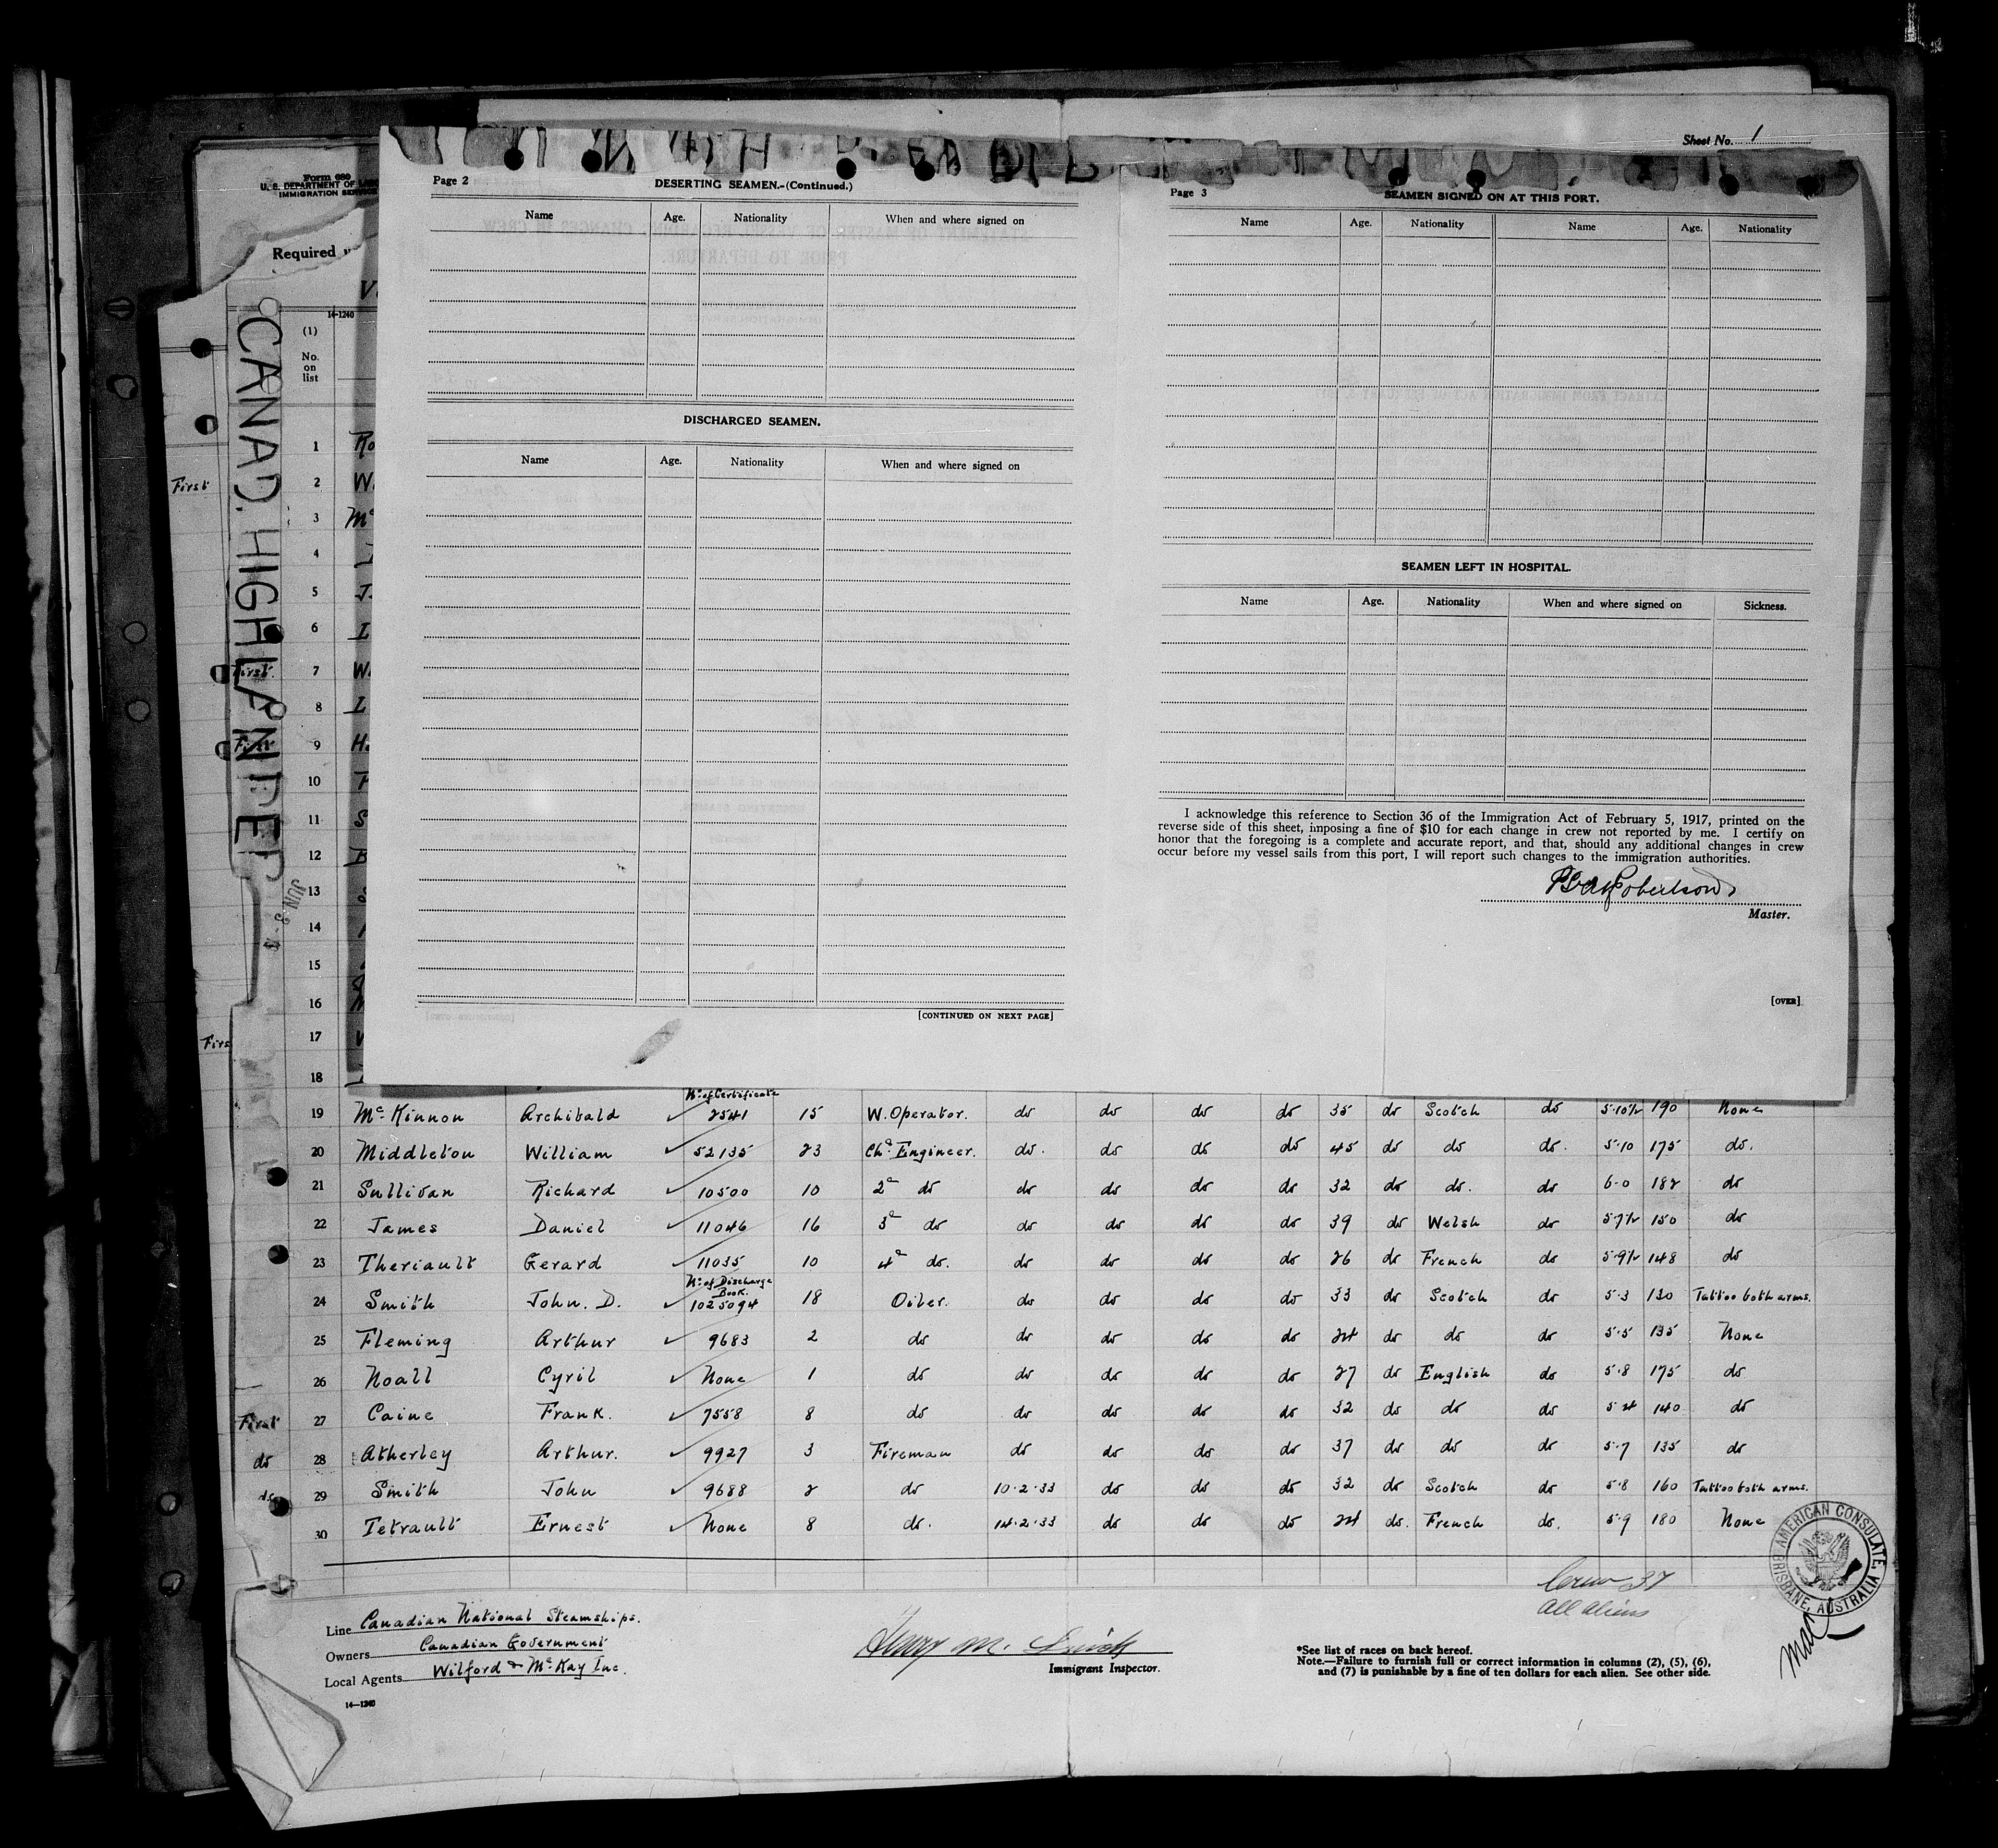 Sheet No. 1
Form 680
U. S. DEPARTMENT OF
IMMIGRATION
Required
14-1240
(1)
No.
on
list
CANAD. HIGHLANDER
JUN
Page 2
DESERTING SEAMEN.-(Continued.)
Name Age. Nationality When and where signed on
DISCHARGED SEAMEN.
Name Age. Nationality When and where signed on
[CONTINUED ON NEXT PAGE]
Page 3
SEAMEN SIGNED ON AT THIS PORT.
Name Age. Nationality Name Age. Nationality
SEAMEN LEFT IN HOSPITAL.
Name Age. Nationality When and where signed on Sickness.
I acknowledge this reference to Section 36 of the Immigration Act of February 5, 1917, printed on the
reverse side of this sheet, imposing a fine of $10 for each change in crew not reported by me. I certify on
honor that the foregoing is a complete and accurate report, and that, should any additional changes in crew
occur before my vessel sails from this port, I will report such changes to the immigration authorities.
Robertson
Master.
[OVER]
1
First 2
3
4
5
6
First 7
8
First 9
10
11
12
13
14
15
16
17
18
No of Certificate
19 Mc Kinnon Archibald ✓ 2541 15 W. Operator. do do do do 35 do Scotch do 5-10½ 190 None
20 Middleton William ✓ 52135 23 Ch. Engineer. do. do do do 45 do do do. 5-10 175 do.
21 Sullivan Richard ✓ 10500 10 2d do do do do do 32 do do. do 6-0 182 do
22 James Daniel ✓ 11046 16 3d do do do do do 39 do Welsh do 5-7½ 150 do
23 Theriault Gerard ✓ 11035 10 4d do. do do do do 26 do French do 5-9½ 148 do
No of Discharge
Book.
24 Smith John. D. ✓ 1025094 18 Oiler. do do do do 33 do Scotch do 5-3 130 Tattoo both arms.
25 Fleming Arthur ✓ 9683 2 do do do do do 24 do do do 5-5 135 None
26 Noall Cyril ✓ None 1 do do do do do 27 do English do 5-8 175 do
First 27 Caine Frank. ✓ 7558 8 do do do do do 32 do do do 5-4 140 do
do 28 Atherley Arthur. ✓ 9927 3 Fireman do do do do 37 do do do 5-7 135 do
do 29 Smith John ✓ 9688 2 do 10-2-33 do do do 32 do Scotch do 5-8 160 Tattoo both arms.
30 Tetrault Ernest ✓ None 8 do. 14-2-33 do do do 24 do. French do. 5-9 180 None
Crew 37
All aliens
AMERICAN CONSULATE,
BRISBANE, AUSTRALIA
Line Canadian National Steamships.
Owners Canadian Government
Local Agents Wilford & McKay Inc.
14—1240
Henry M.
Immigrant Inspector.
*See list of races on back hereof.
Note.—Failure to furnish full or correct information in columns (2), (5), (6),
and (7) is punishable by a fine of ten dollars for each alien. See other side.